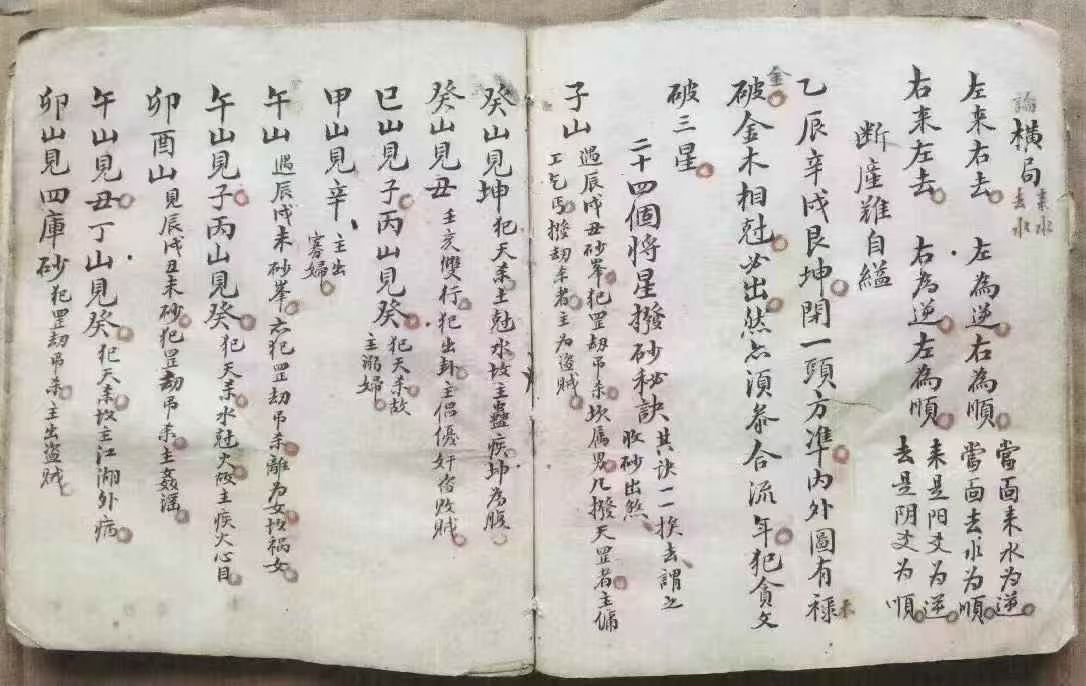 論橫局来水去水
左来右去 左為逆右為順 當面来水為逆當面去水為順
右来左去 右為逆左為順 来是阳爻为逆去是阴爻为順
断産難自縊
乙辰辛戌艮坤閉一頭方準内外圖有祿未
破金木相尅必出然点須叅合流年犯貪文
金
破三星
二十四個將星撥砂秘訣其訣一一挨去謂之收砂出煞
子山遇辰戌丑砂峯犯罡劫吊杀坎属男凡撥天罡者主傭工乞丐撥劫杀者主为盗賊
癸山見坤犯天杀土尅水故主蠱疾坤为腹
癸山見丑壬亥雙行犯出卦主倡優奸香败賊
巳山見子丙山見癸犯天杀故主溺婦
甲山見辛主出寡婦
午山遇辰戌未砂峯亦犯罡劫吊杀離为女故祸女
午山見子丙山見癸犯天杀水尅火故主疾火心目
卯酉山見辰戌丑未砂犯罡劫吊杀主姦滛
午山見丑丁山見癸犯天杀故主江湖外病
卯山見四庫砂犯罡劫吊杀主出盗賊